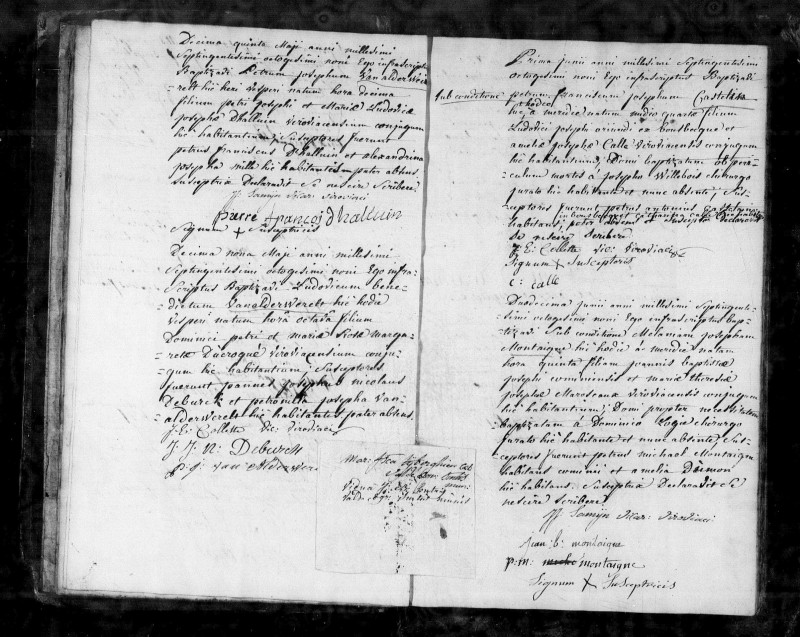 Decima quinta Maji anni millesimi
Septingentesimi octogesimi noni Ego infrascriptus
Baptizavi Petrum josephum Vanalderwe
=reldt hic heri vesperi natum hora decima
filium petri josephi et Mariæ Ludovicæ
josephæ Dhalluin virovacensium conjugum
hic habitantium, Susceptores fuerunt
petrus franciscus Dhalluin et alexandrina
josepha mille hic habitantes pater abfuit
Susceptrix Declaravit Se nescire Scribere
J. Samijn vicar: viroviaci
pierre françois dhalluin
Signum + Susceptricis
Decima nona Maji anni millesimi
Septingentesimi octogesimi noni Ego infra=
Scriptus Baptizavi Ludovicum bene=
dictum Vanalderwerelt hic hodie
vesperi natum horâ octava filium
Dominici petri et mariæ Rosæ marga=
retæ Ducroque viroviacensium conju=
gum hic habitantium, Susceptores
fuerunt joannes josephus nicolaus
Deburck et petronilla josepha Van=
alderwerelt hic habitantes pater absens
J: E: Collette vic: viroviaci
J: J: N: Deburck
p j: van Alderwere
Prima junii anni millesimi Septingentesimi
octogesimi noni Ego infrascriptus Baptizavi
Sub conditione petrum franciscum josephum Castelain
hic hodie
a meridie natum media quarta filium
Ludovici josephi oriundi ex bousbecque et
ameliæ josephæ Calle viroviacensis conjugum
hic habitantium, Domi baptizatum ob peri=
culum mortis a josepho Willebois chirurgo
jurato hic habitante et nunc absente, Sus=
ceptores fuerunt petrus antonius Castelain
in bousbecque et catharina calle hic
habitans, pater absens et Susceptor Declaravit
Se nescire Scribere
J: E: Collette vic: viroviaci
Signum + Susceptoris
c: calle
Duodecima junii anni millesimi Septingente=
=simi octogesimi noni Ego infrascriptus bap=
tizavi Sub conditione Melaniam josepham
Montaigne hic hodie a meridie natam
hora quinta filiam joannis baptistæ
josephi cominensis et mariæ theresiæ
josephæ Maroteaux viroviacensis conjugum
hic habitantium, Domi propter necessitatem
baptizatam a Dominico chirurgo
jurato hic habitante et nunc absente, Sus=
ceptores fuerunt petrus michael Montaigne
habitans cominii et amelia Dumon
hic habitans. Susceptrix Declaravit Se
nescire Scribere
J. Samijn vicar: viroviaci
jean: b: montaigne
p: m: montaigne
Signum + Susceptricis